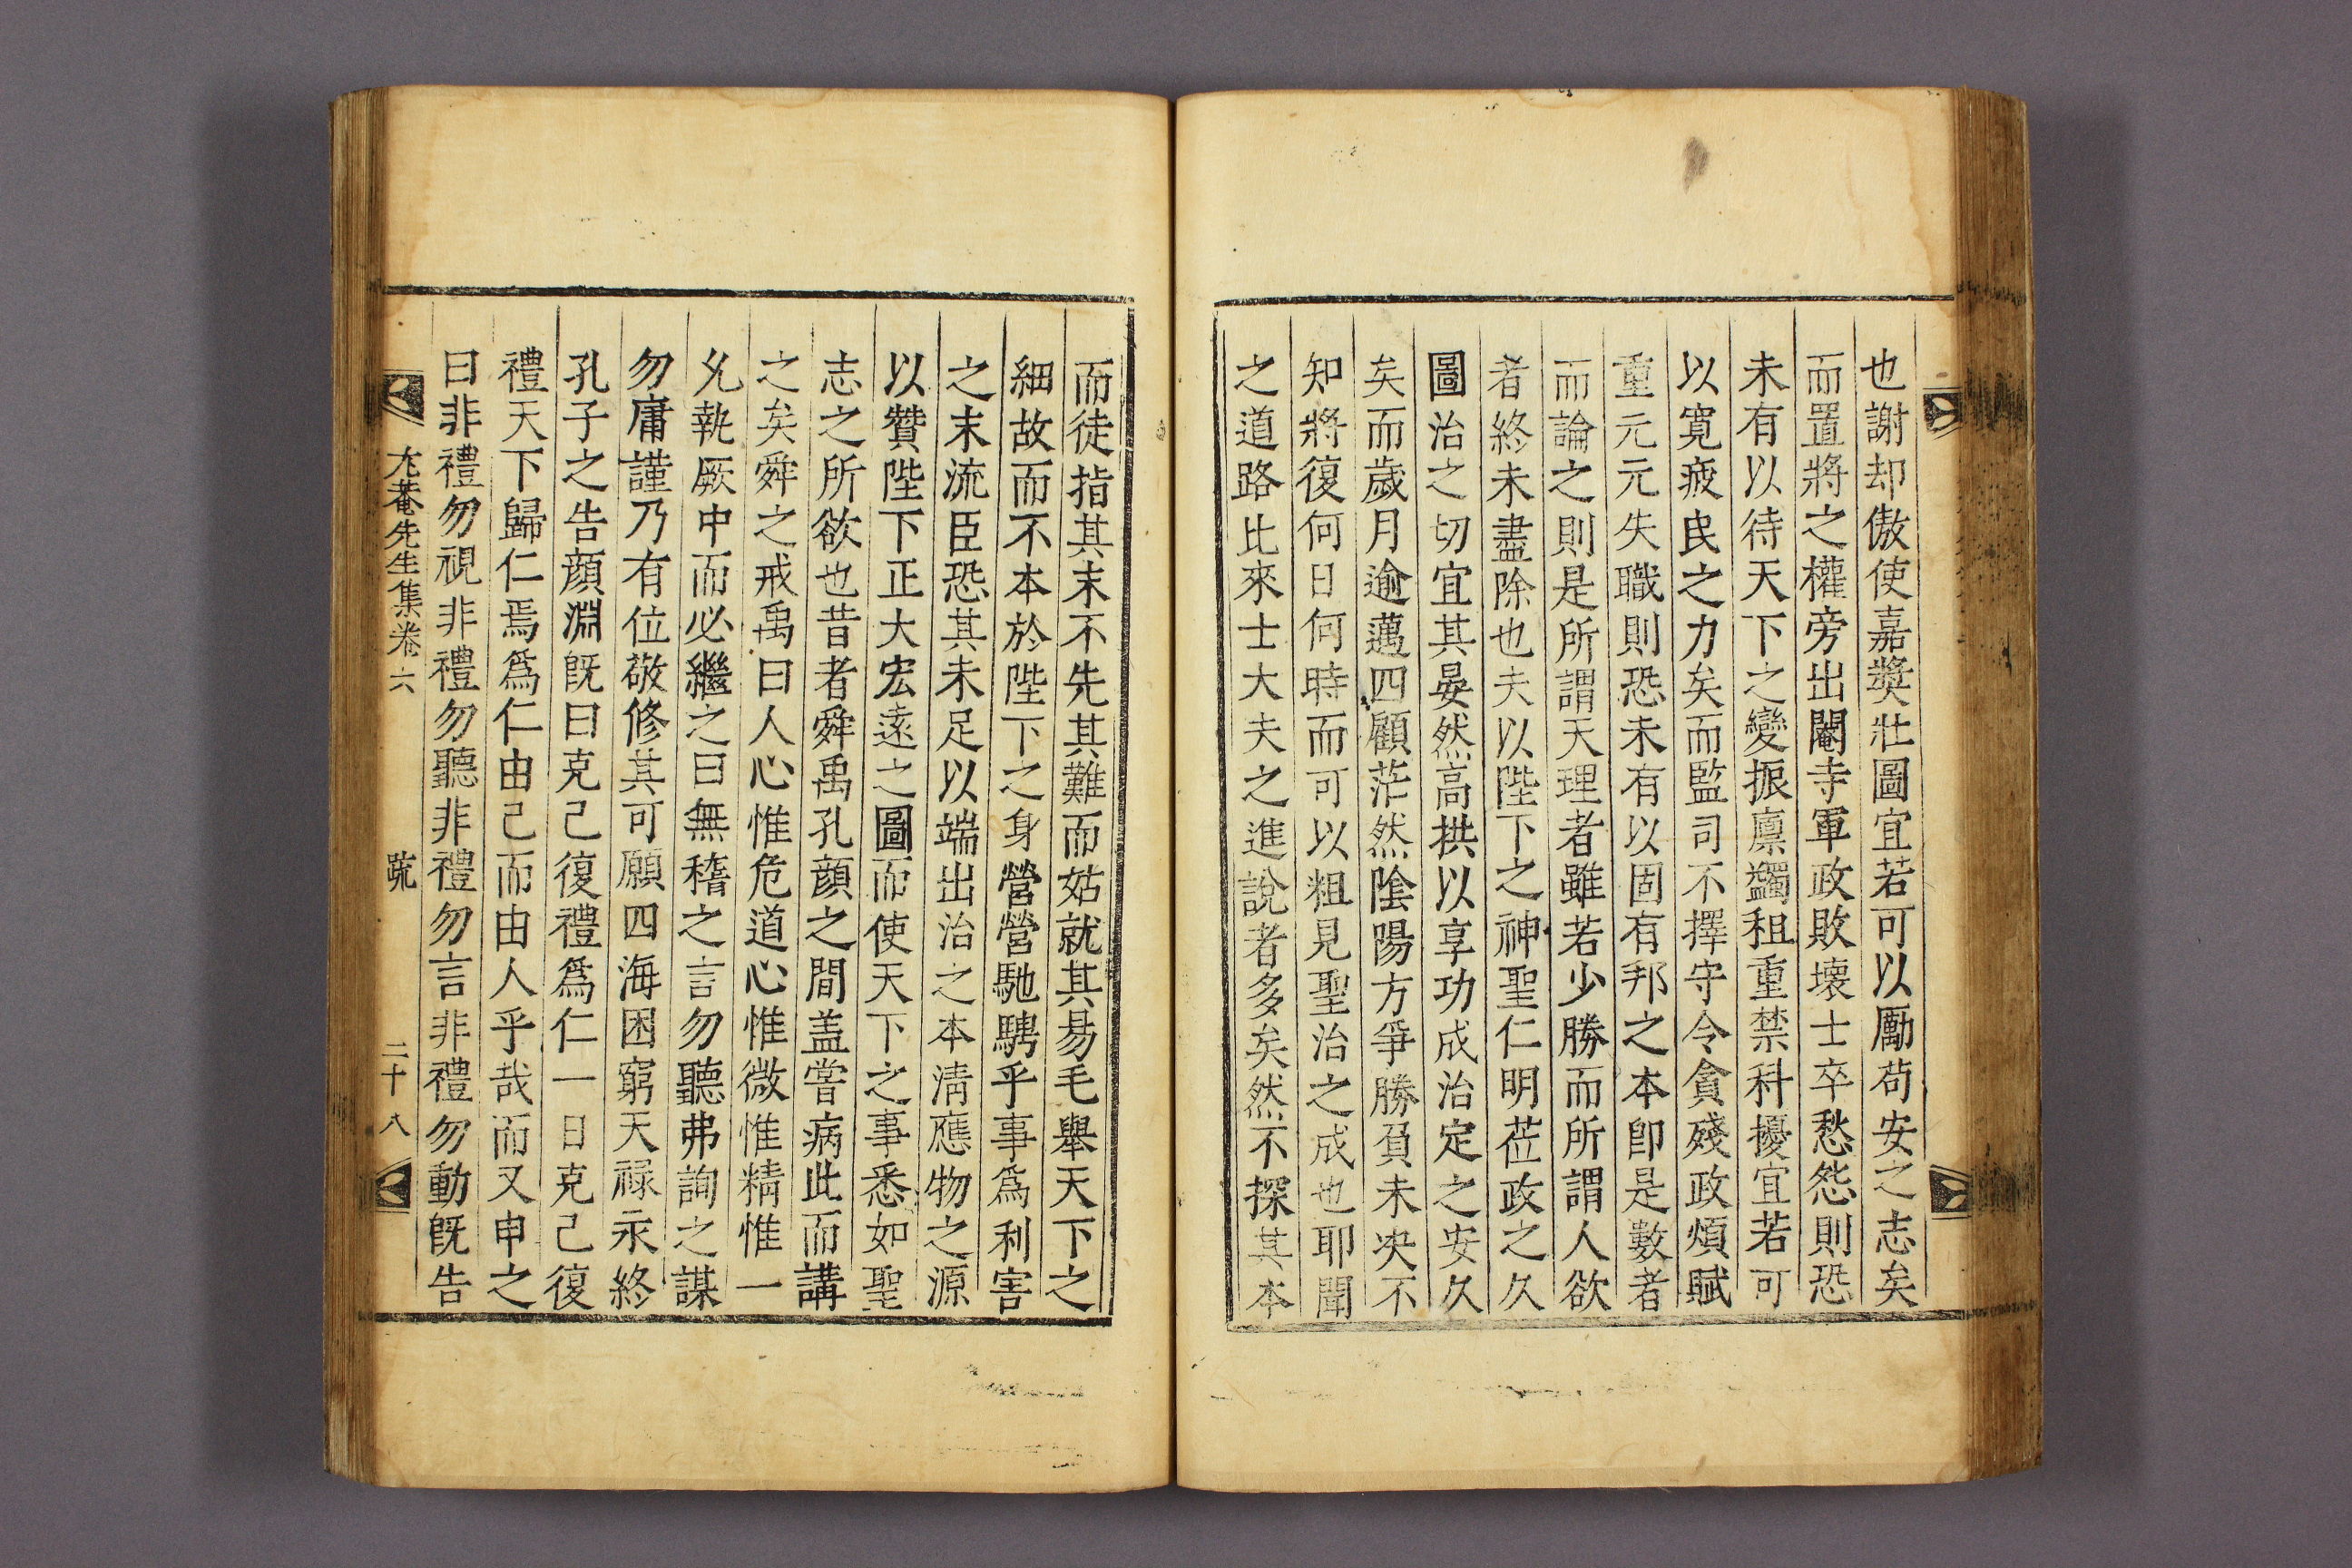 也謝却傲使嘉奬壯圖宜若可以勵苟安之志矣
而置將之權旁出閹寺軍政敗壞士卒愁怨則恐
未有以待天下之變振廪蠲租重禁科擾宜若可
以寬疲民之力矣而監司不擇守令貪殘政煩賦
重元元失職則恐未有以固有邦之本卽是數者
而論之則是所謂天理者雖若少勝而所謂人欲
者終未盡除也夫以陛下之神聖仁明莅政之久
圖治之切宜其晏然高拱以享功成治定之安久
矣而歲月逾邁四顧茫然陰陽方爭勝負未決不
知將復何日何時而可以粗見聖治之成也耶聞
之道路比來士大夫之進說者多矣然不探其本
而徒指其末不先其難而姑就其易毛舉天下之
細故而不本於陛下之身營營馳騁乎事爲利害
之末流臣恐其未足以端出治之本淸應物之源
以贊陛下正大宏遠之圖而使天下之事悉如聖
志之所欲也昔者舜禹孔顔之間盖嘗病此而講
之矣舜之戒禹曰人心惟危道心惟微惟精惟一
允執厥中而必繼之曰無稽之言勿聽弗詢之謀
勿庸謹乃有位敬修其可願四海困窮天祿永終
孔子之告顔淵旣曰克己復禮爲仁一日克己復
禮天下歸仁焉爲仁由己而由人乎哉而又申之
曰非禮勿視非禮勿聽非禮勿言非禮勿動旣告
尤菴先生集卷六 疏 二十八